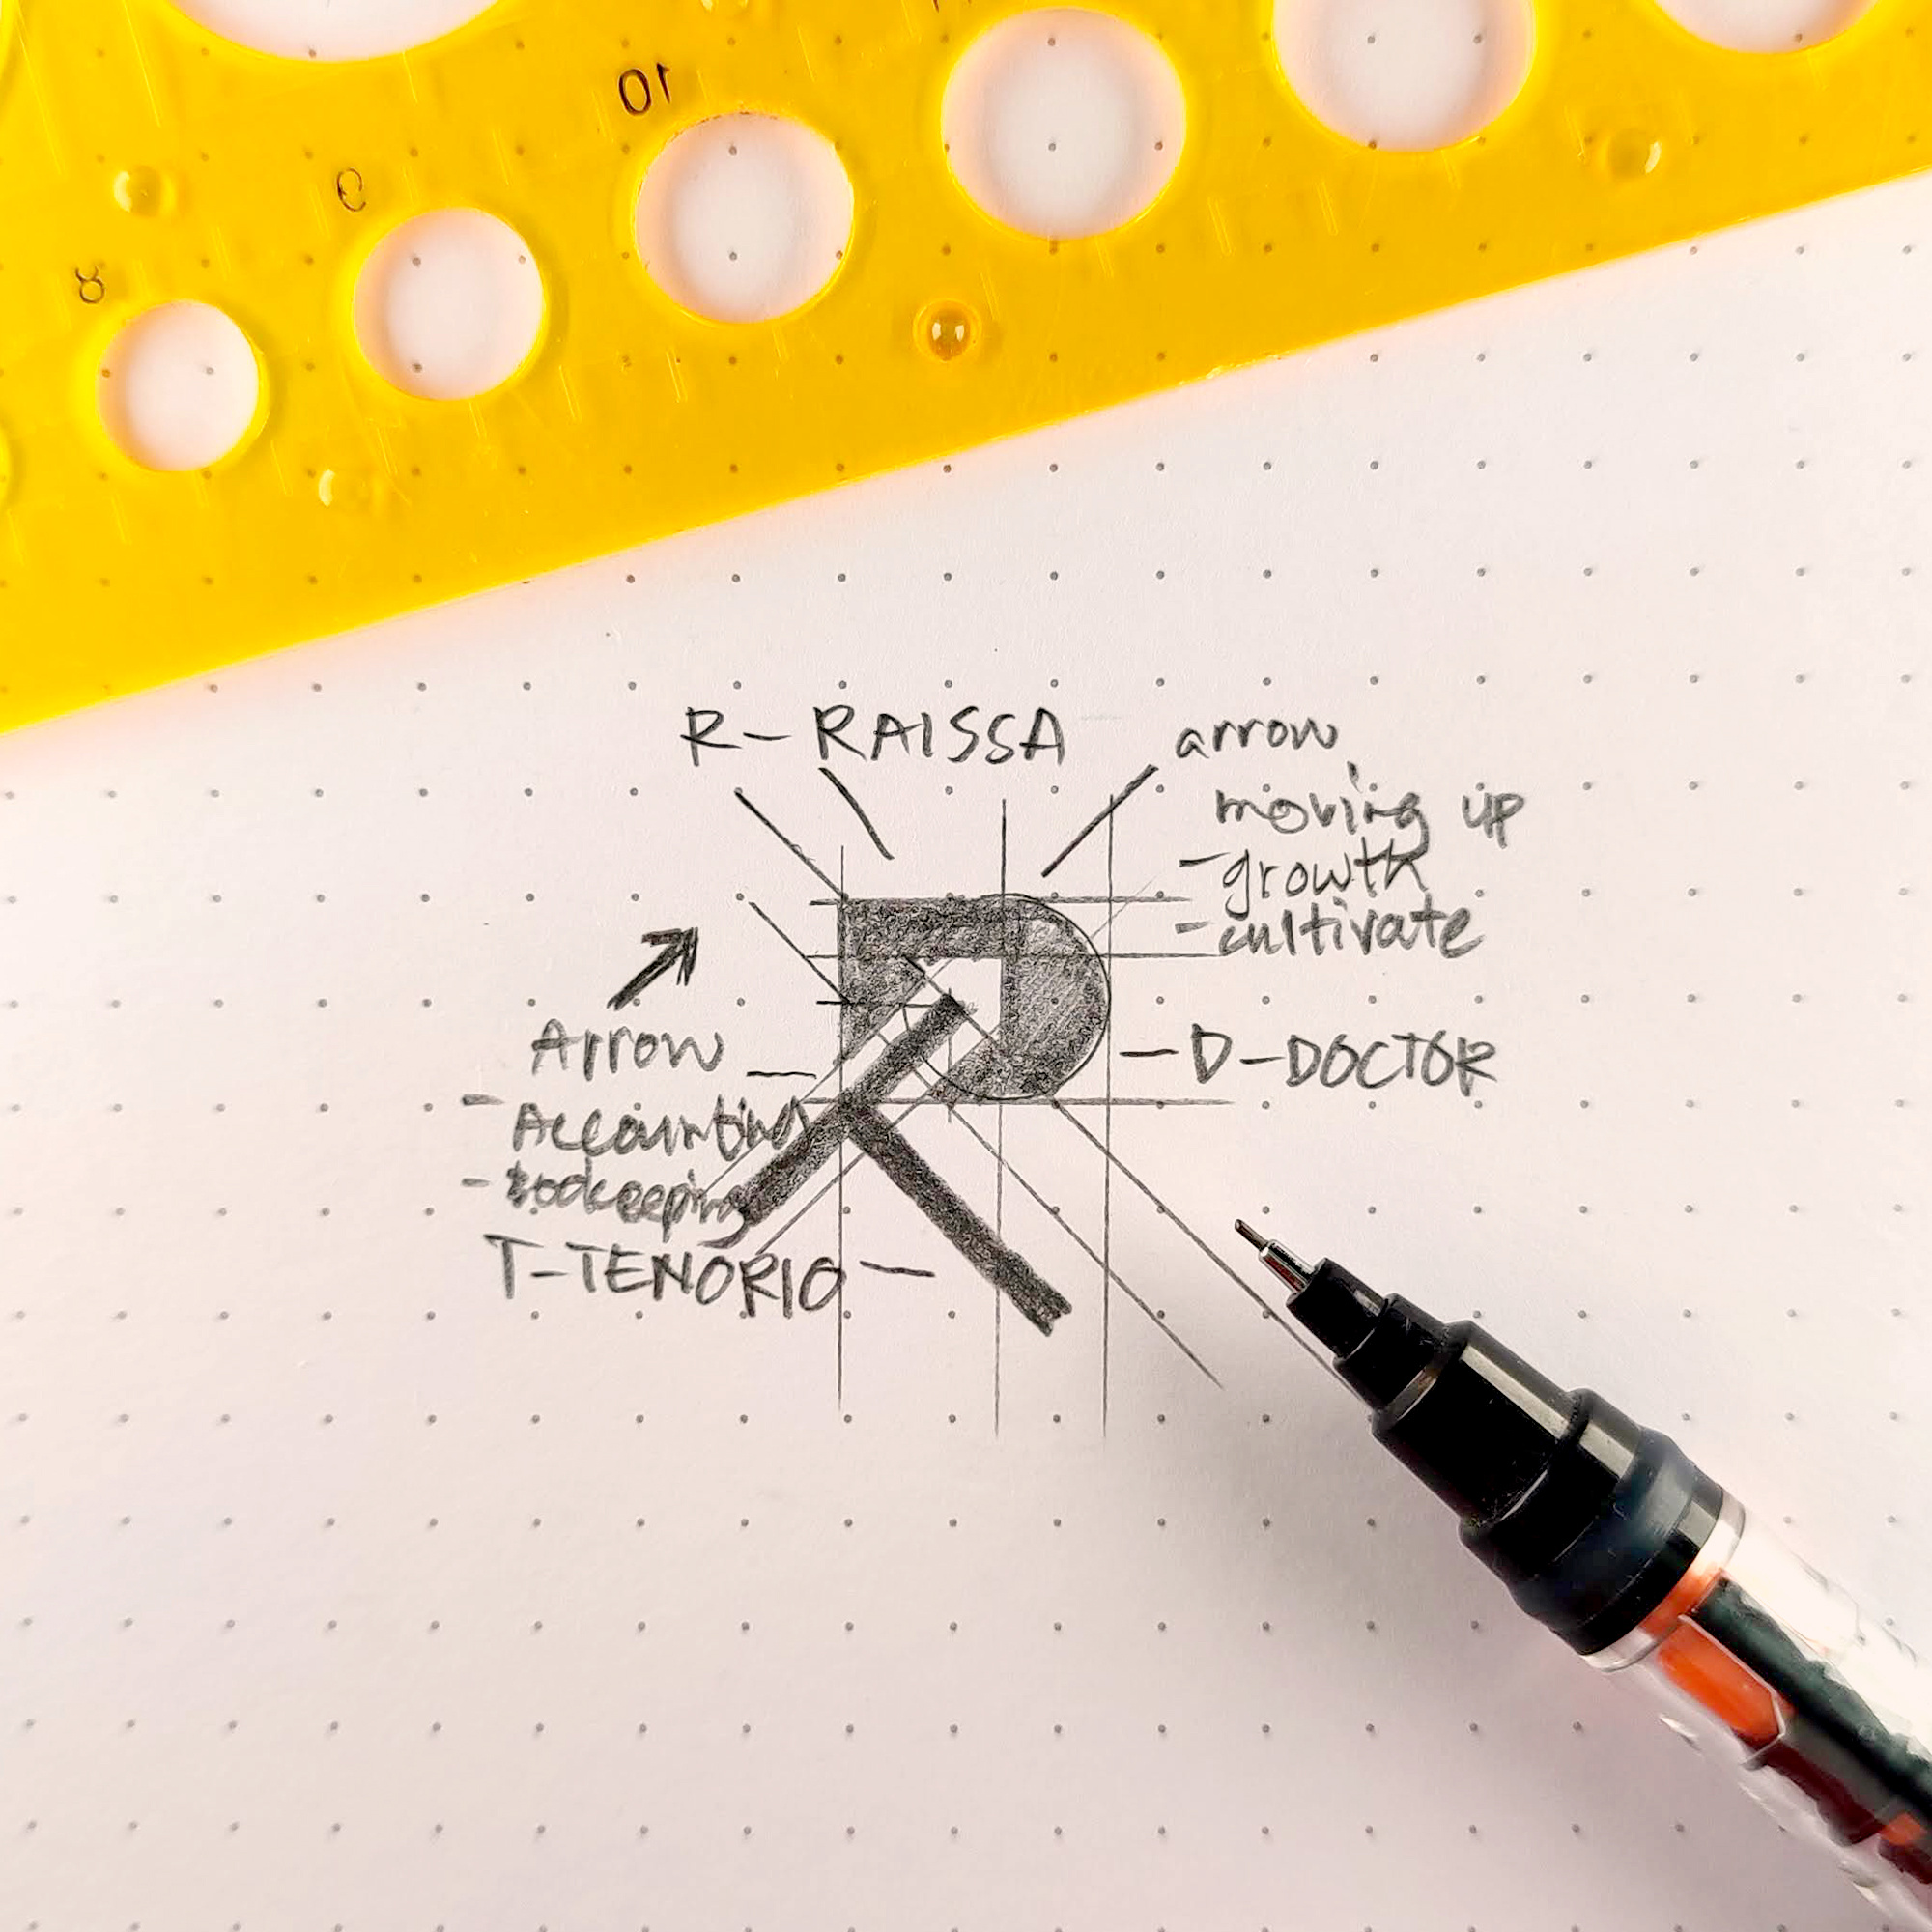 10
9
8
R - RAISSA
arrow
moving up
- growth
- cultivate
Arrow
- Accounting
- Bookeeping
D - DOCTOR
T - TENORIO